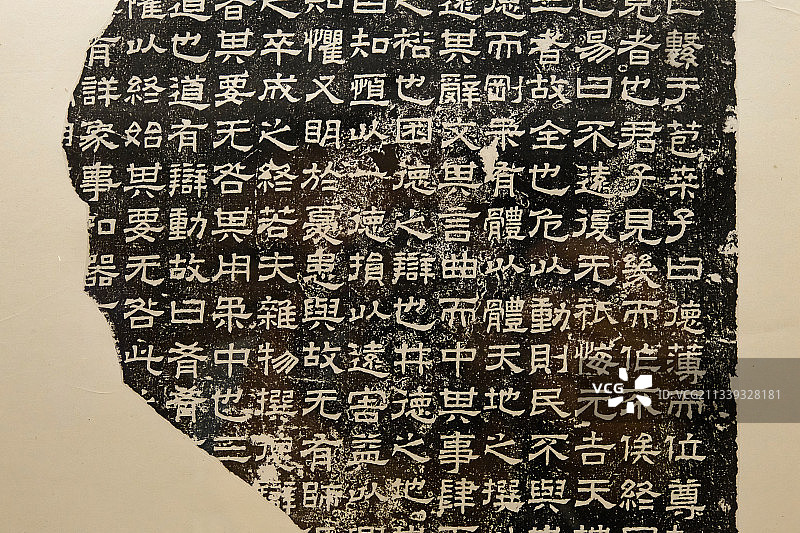 亡繫于苞桑子曰德薄而位尊
見者也君子見幾而作不俟終
已易曰不遠復无祇悔元吉天地
三者故全也危以動則民不與
德而剛柔有體以體天地之撰
遠其辭文其言曲而中其事肆而
之裕也困德之辯也井德之地
自知恆以一德損以遠害益以
知懼又明於憂患與故无有師
之卒成之終若夫雜物撰德辯
者其要无咎其用柔中也三
道也道有辯動故曰肴肴
懼以終始其要无咎此
有詳象事知器
VCG
VCG
ID: VCG211339328181